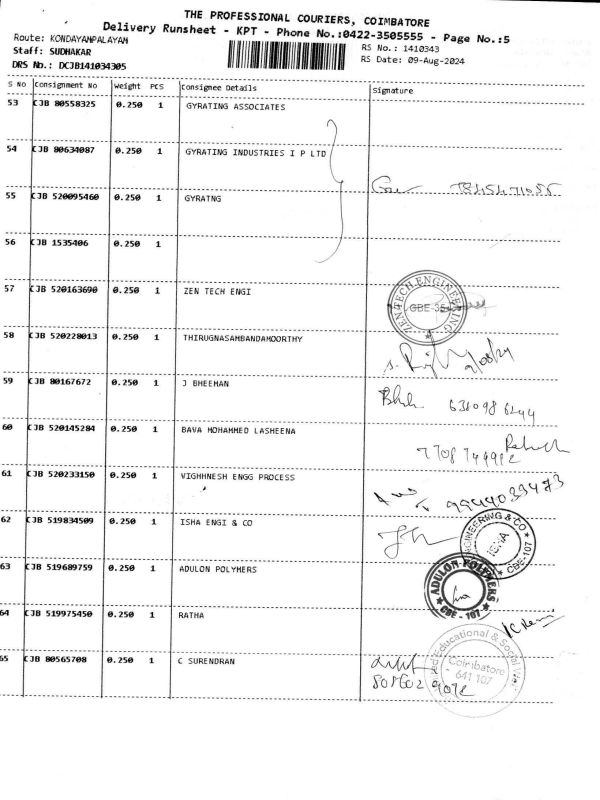 THE PROFESSIONAL COURIERS, COIMBATORE
Delivery Runsheet - KPT - Phone No.:0422-3505555 - Page No.:5
Route: KONDAYAMPALAYAM
Staff: SUDHAKAR
DRS No.: DCJB141034305
RS No.: 1410343
RS Date: 09-Aug-2024
S NO Consignment No Weight PCS Consignee Details Signature
53 CJB 80558325 0.250 1 GYRATING ASSOCIATES
54 CJB 80634087 0.250 1 GYRATING INDUSTRIES I P LTD
55 CJB 520095460 0.250 1 GYRATNG
56 CJB 1535406 0.250 1
57 CJB 520163690 0.250 1 ZEN TECH ENGI
ZEN TECH ENGINEERING
58 CJB 520228013 0.250 1 THIRUGNASAMBANDAMOORTHY
59 CJB 80167672 0.250 1 J BHEEMAN
60 CJB 520145284 0.250 1 BAVA MOHAMMED LASHEENA
61 CJB 520233150 0.250 1 VIGHHNESH ENGG PROCESS
9944039473
62 CJB 519834509 0.250 1 ISHA ENGI & CO
ENGINEERING & CO
ISHA
CBE-107
63 CJB 519689759 0.250 1 ADULON POLYMERS
ADULON POLYMERS
CBE - 107
64 CJB 519975450 0.250 1 RATHA
65 CJB 80565708 0.250 1 C SURENDRAN
Educational & Social
Coimbatore
641 107